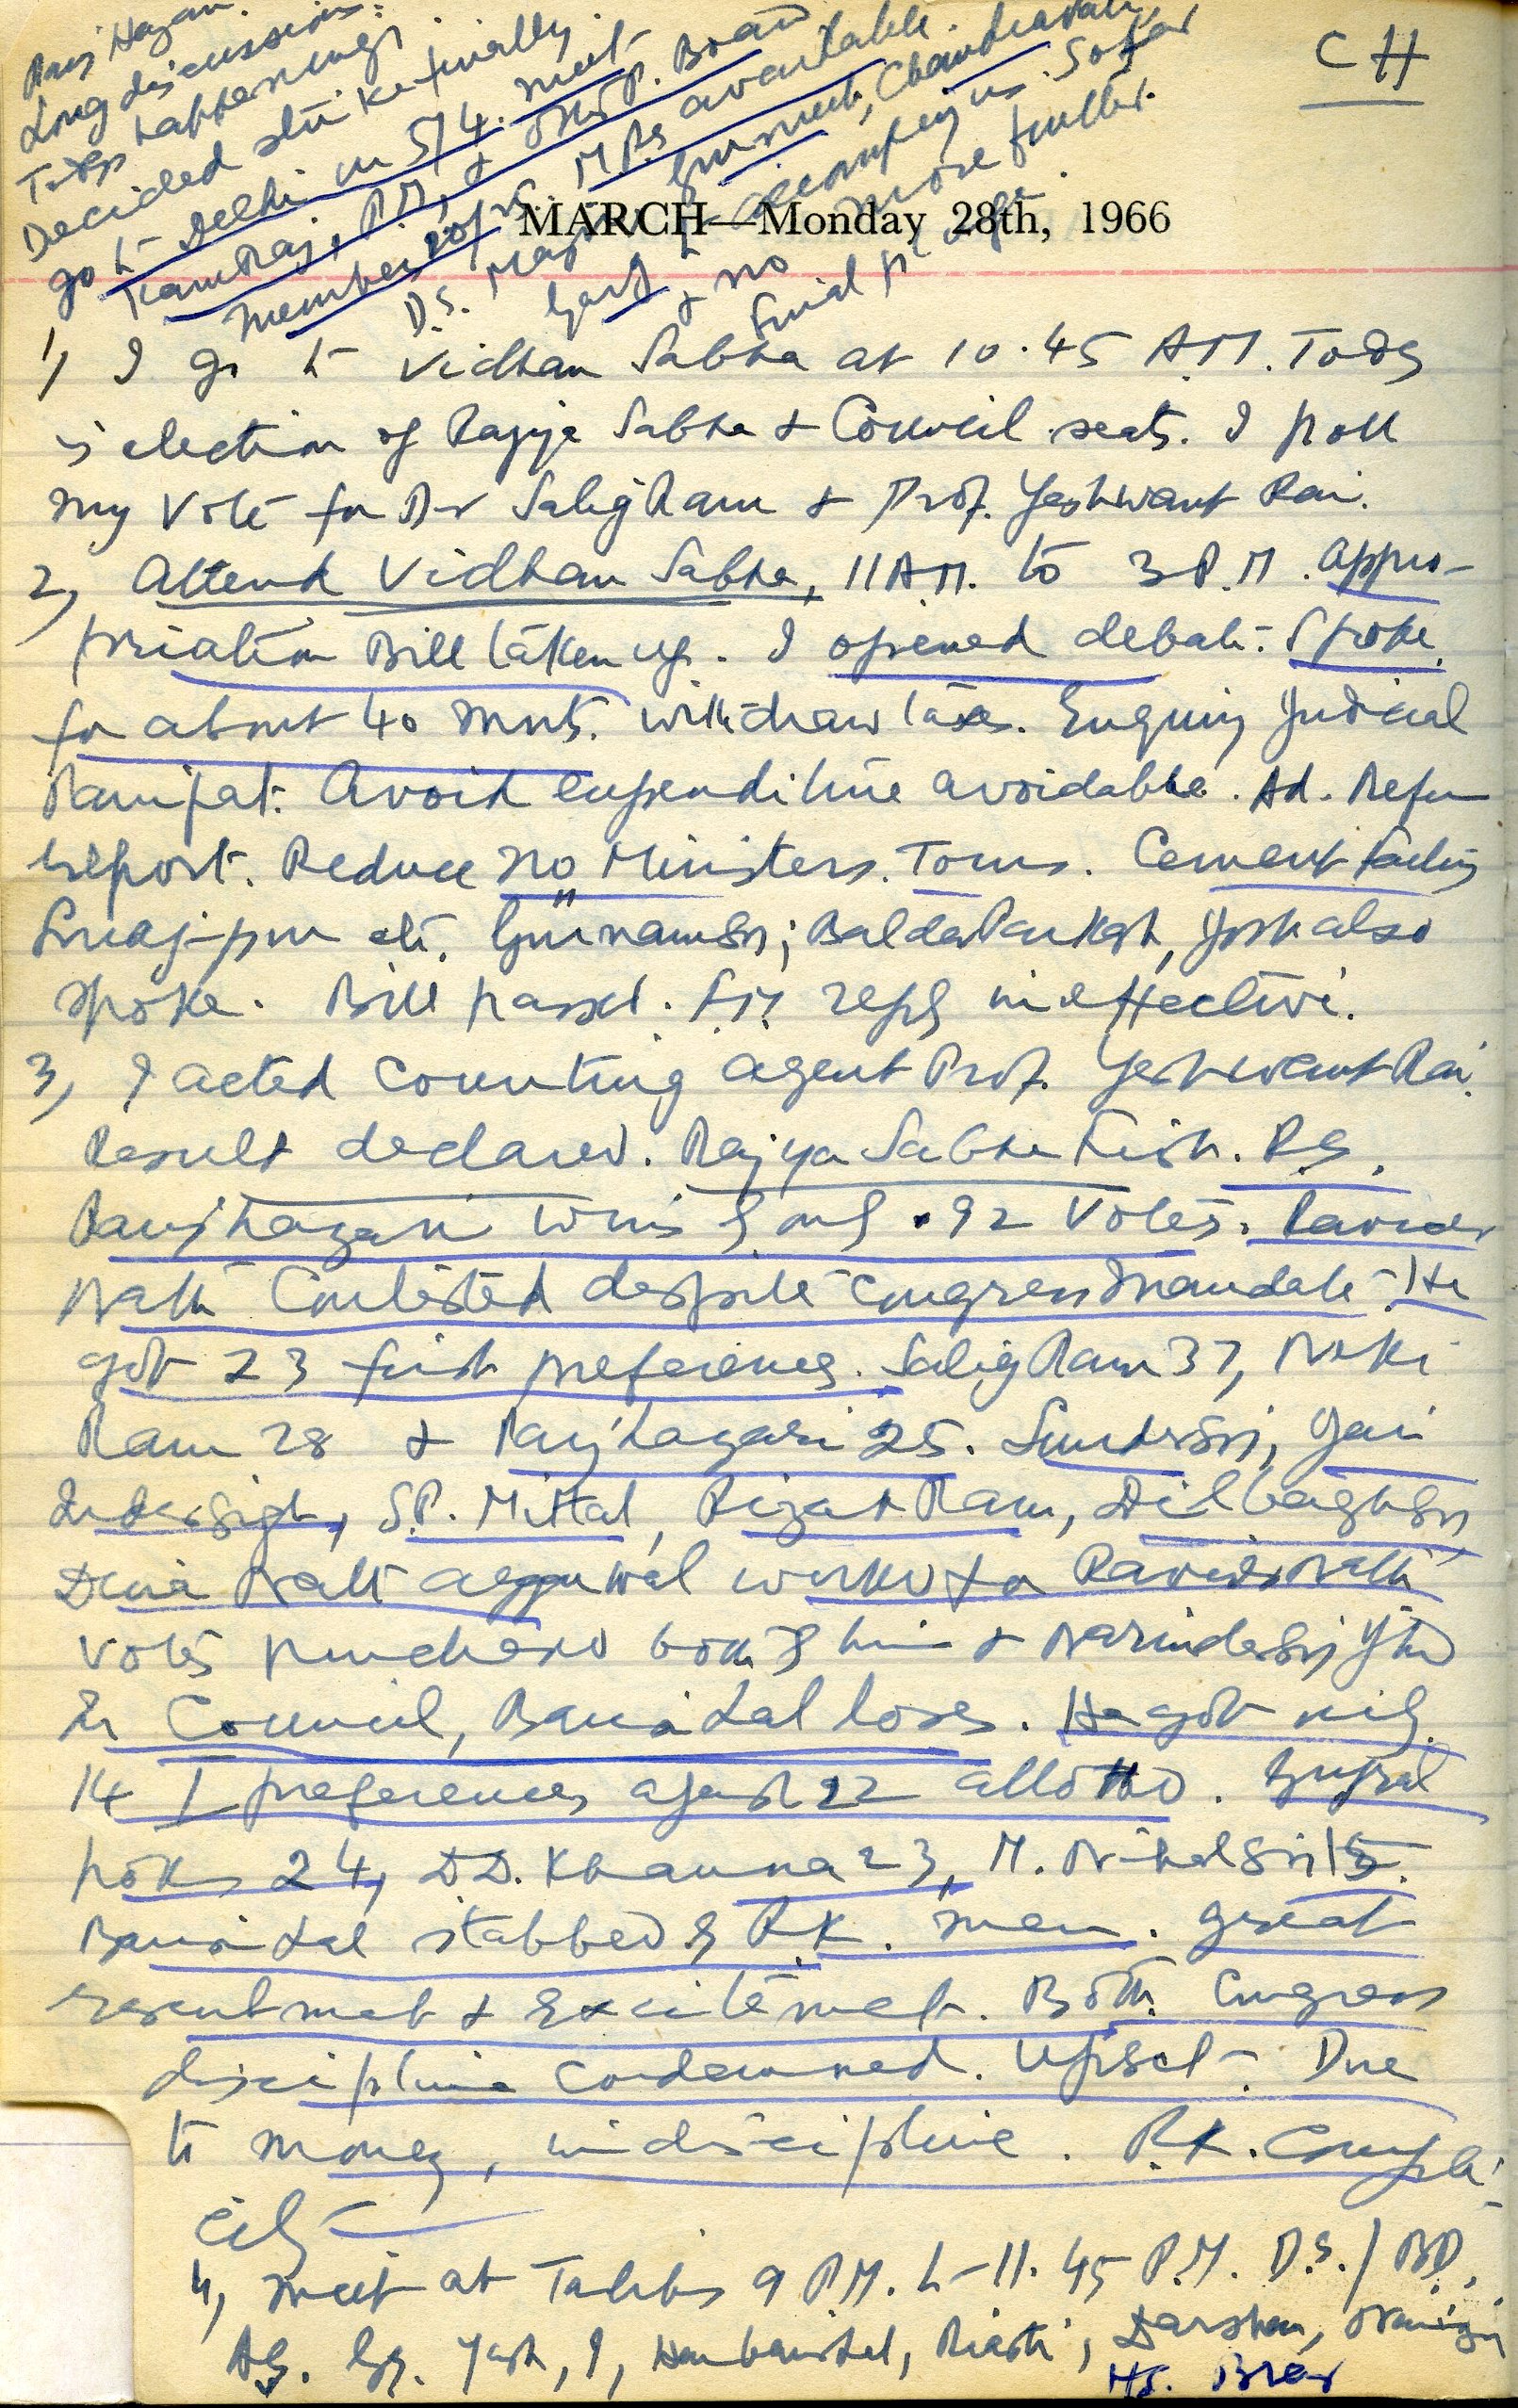 CH
MARCH—Monday 28th, 1966
1) I go to Vidhan Sabha at 10.45 A.M. Today
is election of Rajya Sabha & Council seats. I poll
my Vote for Dr Salig Ram & Prof. Yeshwant Rai.
2) Attend Vidhan Sabha, 11 A.M. to 3 P.M. Appro-
priation Bill taken up. I opened debate. Spoke
for about 40 mnts. Withdraw taxes. Enquiry Judicial
Panipat. Avoid expenditure avoidable. Ad. Refm
report. Reduce no Ministers. Tours. Cement factory
Surajpur etc. Gurnam Sn; Baldev Parkash, Yash also
spoke. Bill passed. reply ineffective.
3) I acted Counting agent Prof. Yeshwant Rai.
Result declared. Rajya Sabha First. R.S.
Ramji wins by only .92 Votes. Ravinder
Nath Contested despite Congress mandate. He
got 23 first preferences. Salig Ram 37, Neki
Ram 28 & 25. Sunder Sn, Gani
Inder Singh, S.P. Mittal, Rizak Ram, Dilbagh Sn,
Dina Nath Aggarwal worked for Ravinder Nath
Votes purchased both by him & Narinder Sn
In Council, Bansi Lal loses. He got only
14 I preferences against 22 allotted. Gujral
polls 24, D.D. Khanna 23, M. Nihal Sn 15.
Bansi Lal stabbed by R.K. men. Great
resentment & Excitement. Both Congress
discipline condemned. Upset. Due
to money, indiscipline. R.K. Compli-
city
4) meet at Talibs 9 P.M. to 11.45 P.M. D.S. / BD.
Yash, I, Harbans Lal, Darshan,
HS. Brar
Long discussions.
Todays happenings.
Decided strike finally
go to Delhi on 5/4. meet
Kamraj, P.M., & Board
members, MPs available.
D.S. Chandravati
Garg to accompany us. Sofar
& no more further.